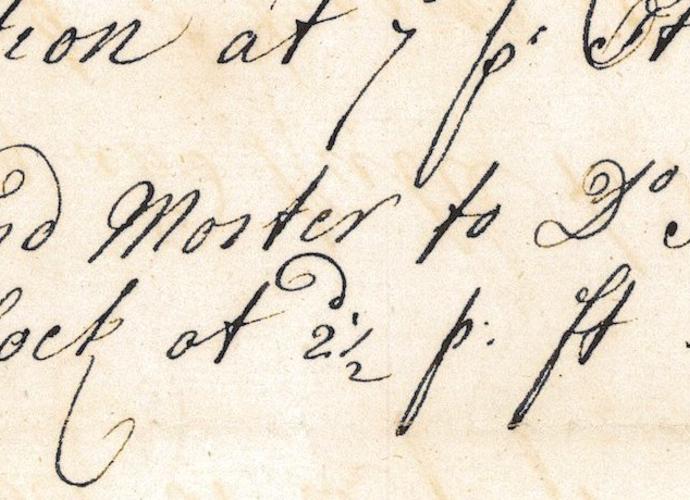 tion at 7 p.r
nd Morter to D.o
lock at 2½ p: ft